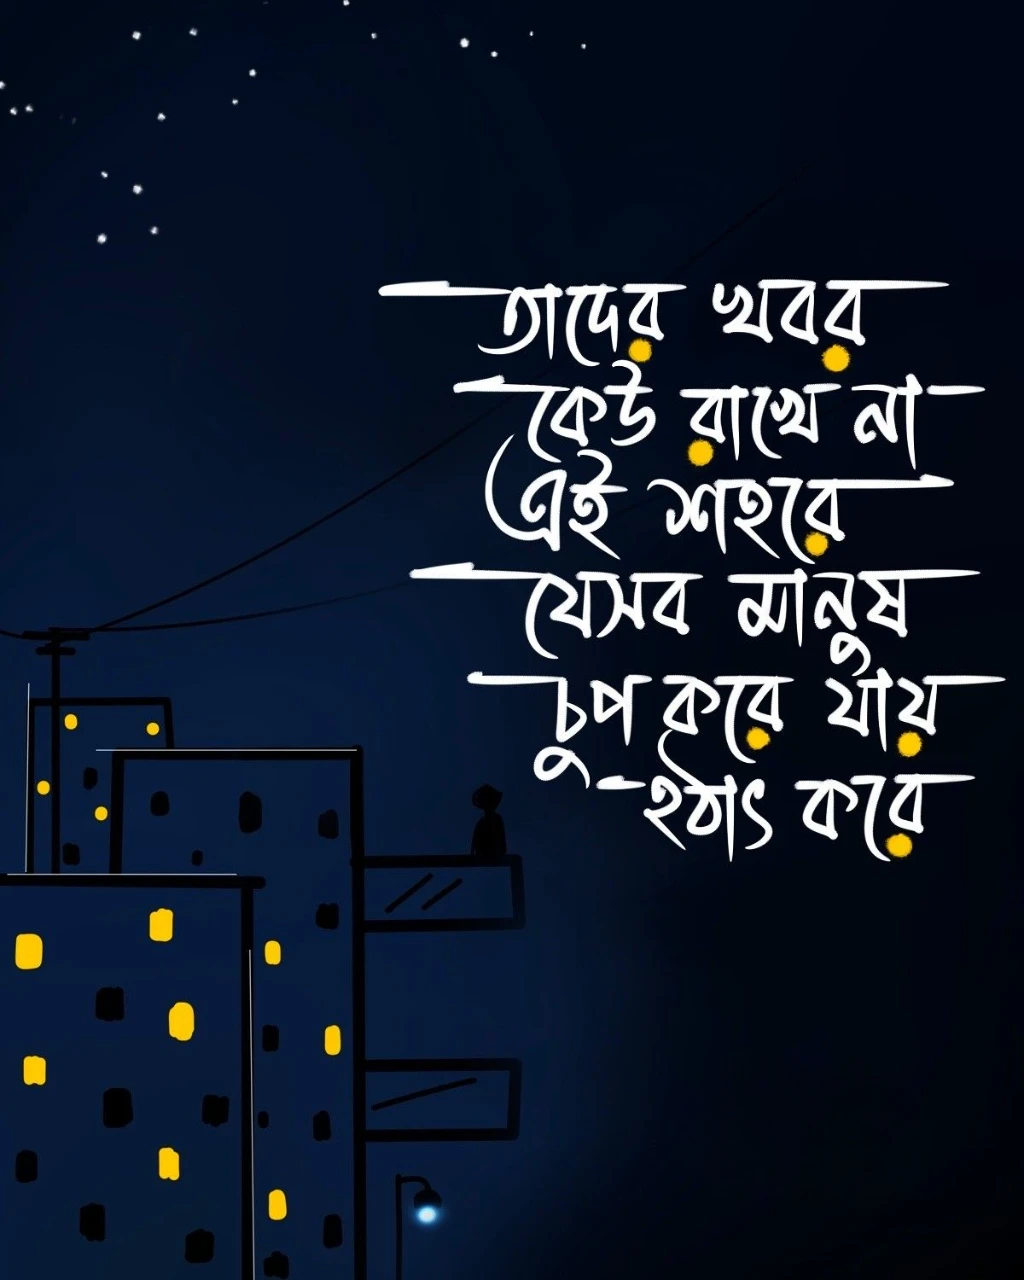 তাদের খবর
কেউ রাখে না
এই শহরে
যেসব মানুষ
চুপ করে যায়
হঠাৎ করে